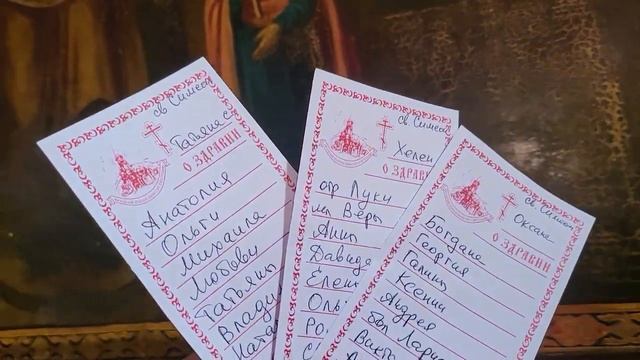 св Симеон
Татьяна
О ЗДРАВИИ
Анатолия
Ольги
Михаила
Любови
Татьяны
Влади
Ката
св. Симеон
Хелен
О ЗДРАВИИ
отр Луки
мл Веры
Анны
Давида
Елен
Оль
Ро
св. Симеон
Оксана
О ЗДРАВИИ
Богдана
Георгия
Галины
Ксении
Андрея
бол Лари
Викто